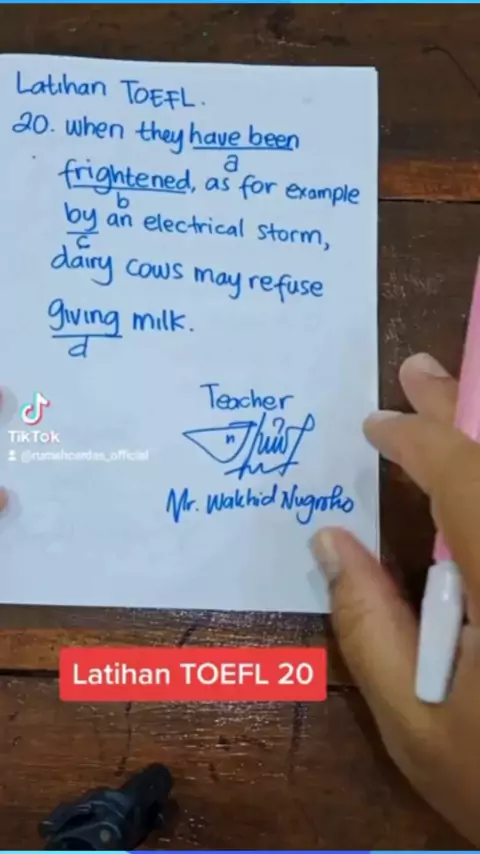 Latihan TOEFL.
20. when they have been
a
frightened, as for example
b
by an electrical storm,
c
dairy cows may refuse
giving milk.
d
Teacher
Mr. Wakhid Nugroho
TikTok
@rumahcerdas_official
Latihan TOEFL 20